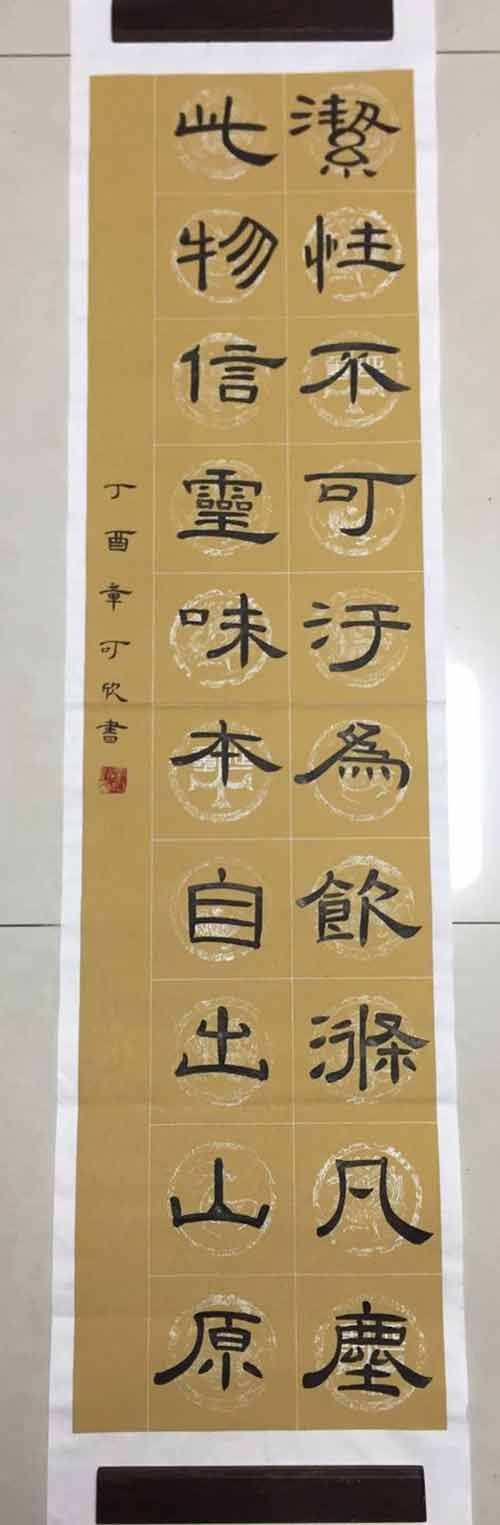 潔性不可汙為飲滌凡塵
此物信靈味本自出山原
丁酉章可欣書